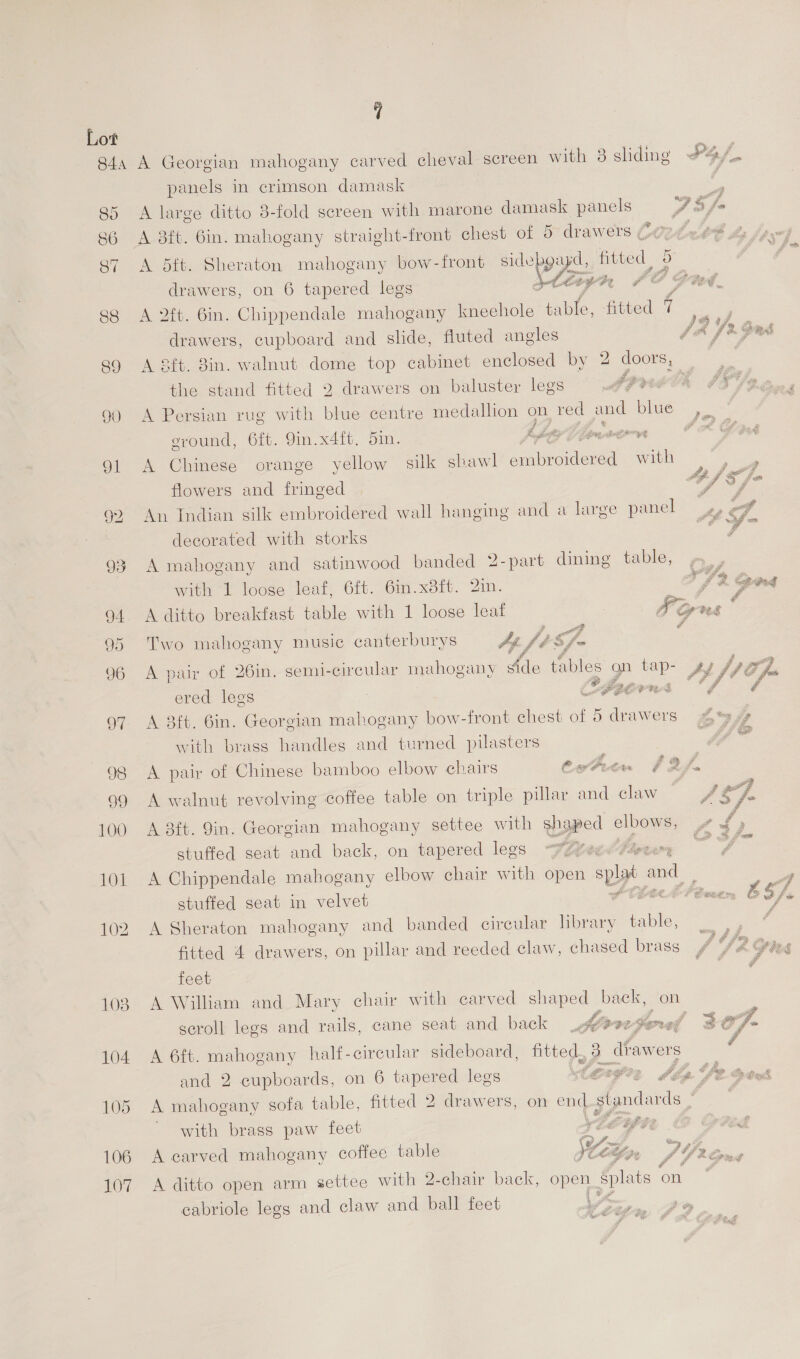 7
Lot
84A A Georgian mahogany carved cheval screen with 3 sliding
panels in crimson damask
85 A large ditto 3-fold screen with marone damask panels 75/-
86 A 3ft. 6in. mahogany straight-front chest of 5 drawers
87 A 5ft. Sheraton mahogany bow-front sideboard, fitted 5
drawers, on 6 tapered legs
88 A 2ft. 6in. Chippendale mahogany kneehole table, fitted 7
drawers, cupboard and slide, fluted angles
89 A 3ft. 3in. walnut dome top cabinet enclosed by 2 doors,
the stand fitted 2 drawers on baluster legs
90 A Persian rug with blue centre medallion on red and blue
ground, 6ft. 9in.x4ft. 5in.
91 A Chinese orange yellow silk shawl embroidered with
flowers and fringed
92 An Indian silk embroidered wall hanging and a large panel
decorated with storks
93 A mahogany and satinwood banded 2-part dining table,
with 1 loose leaf, 6ft. 6in.x3ft. 2in.
94 A ditto breakfast table with 1 loose leaf
95 Two mahogany music canterburys
96 A pair of 26in. semi-circular mahogany side tables on tap-
ered legs
97 A 3ft. 6in. Georgian mahogany bow-front chest of 5 drawers
with brass handles and turned pilasters
98 A pair of Chinese bamboo elbow chairs
99 A walnut revolving coffee table on triple pillar and claw 15/-
100 A 3ft. 9in. Georgian mahogany settee with shaped elbows,
stuffed seat and back, on tapered legs
101 A Chippendale mahogany elbow chair with open splat and
stuffed seat in velvet 65/-
102 A Sheraton mahogany and banded circular library table,
fitted 4 drawers, on pillar and reeded claw, chased brass
feet
103 A William and Mary chair with carved shaped back, on
scroll legs and rails, cane seat and back 30/-
104 A 6ft. mahogany half-circular sideboard, fitted 3 drawers
and 2 cupboards, on 6 tapered legs
105 A mahogany sofa table, fitted 2 drawers, on end standards
with brass paw feet
106 A carved mahogany coffee table
107 A ditto open arm settee with 2-chair back, open splats on
cabriole legs and claw and ball feet